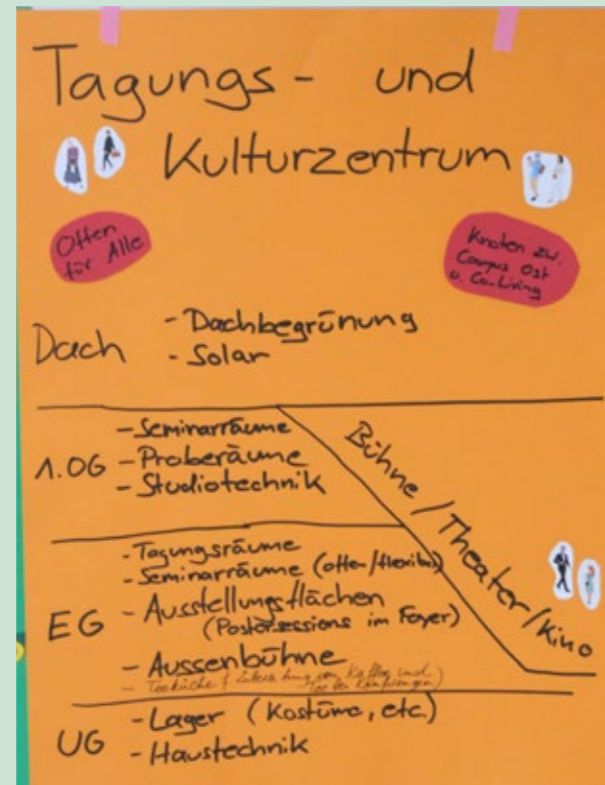 Tagungs- und
Kulturzentrum
Offen
für Alle
Knoten zw.
Campus Ost
u. Co-Living
Dach
- Dachbegrünung
- Solar
1.OG
- Seminarräume
- Proberäume
- Studiotechnik
Bühne/Theater/Kino
EG
- Tagungsräume
- Seminarräume (offen/flexibel)
- Ausstellungsflächen
(Postersessions im Foyer)
- Aussenbühne
- Teeküche von Kaffee und
UG
- Lager (Kostüme, etc.)
- Haustechnik